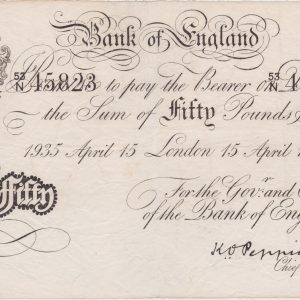 Bank of England
53/N 45823 53/N 4
Promise to pay the Bearer on
the Sum of Fifty Pounds
1935 April 15 London 15 April 1
Fifty
For the Govr. and
of the Bank of Eng
K.O. Peppia
Chief